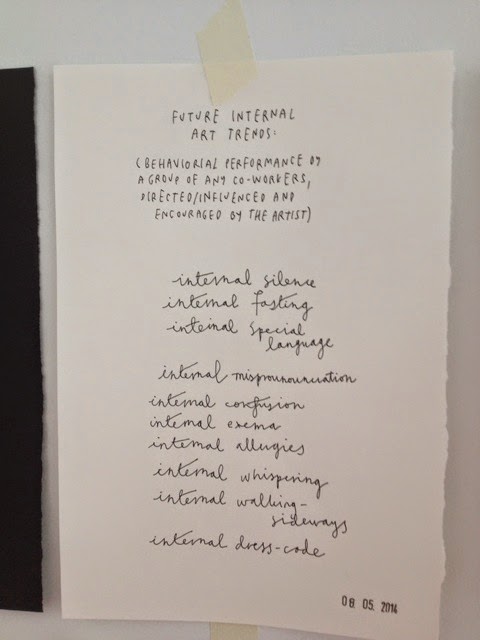 FUTURE INTERNAL
ART TRENDS:
(BEHAVIORIAL PERFORMANCE BY
A GROUP OF ANY CO-WORKERS,
DIRECTED/INFLUENCED AND
ENCOURAGED BY THE ARTIST)
internal silence
internal fasting
internal special
language
internal mispronounciation
internal confusion
internal exema
internal allergies
internal whispering
internal walking-
sideways
internal dress-code
08. 05. 2014